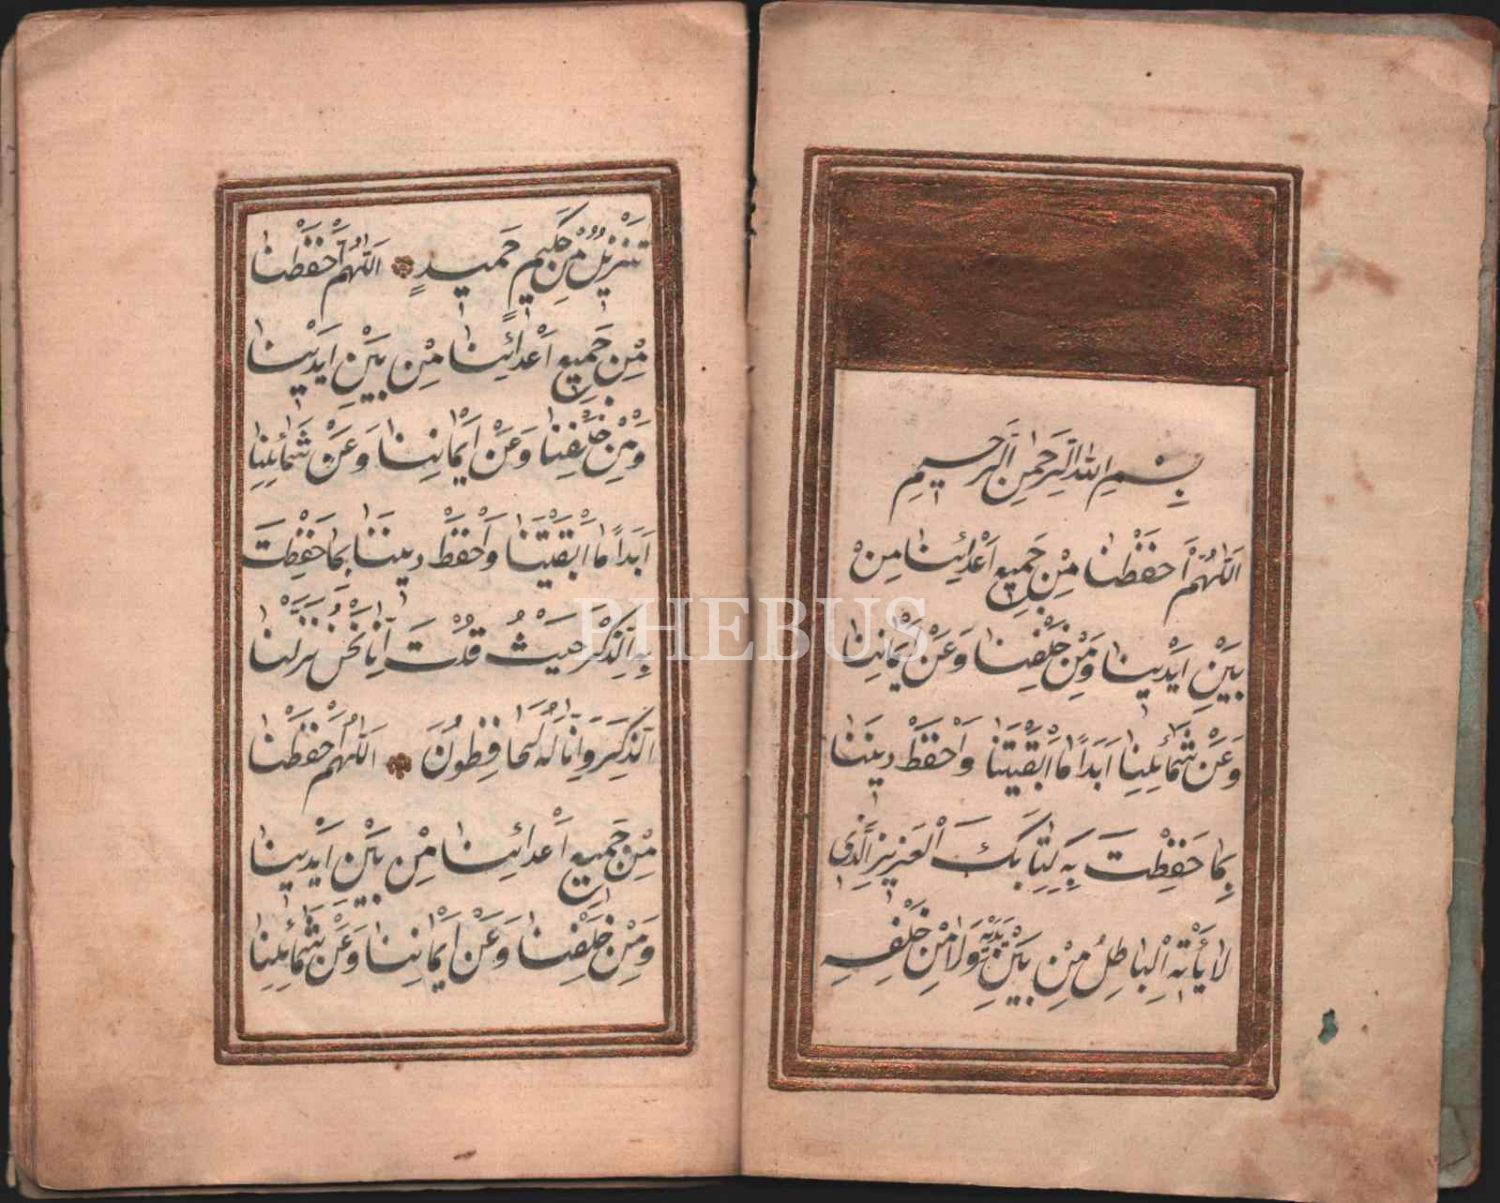 بِسْمِ اللهِ الرَّحْمٰنِ الرَّحِيمِ
اَللّٰهُمَّ احْفَظْنَا مِنْ جَمِيعِ اَعْدَائِنَا مِنْ
بَيْنِ اَيْدِينَا وَمِنْ خَلْفِنَا وَعَنْ اَيْمَانِنَا
وَعَنْ شَمَائِلِنَا اَبَدًا مَا اَبْقَيْتَنَا وَاحْفَظْ دِينَنَا
بِمَا حَفِظْتَ بِهِ كِتَابَكَ الْعَزِيزِ الَّذِي
لَا يَأْتِيهِ الْبَاطِلُ مِنْ بَيْنِ يَدَيْهِ وَلَا مِنْ خَلْفِهِ
تَنْزِيلٌ مِنْ حَكِيمٍ حَمِيدٍ اَللّٰهُمَّ احْفَظْنَا
مِنْ جَمِيعِ اَعْدَائِنَا مِنْ بَيْنِ اَيْدِينَا
وَمِنْ خَلْفِنَا وَعَنْ اَيْمَانِنَا وَعَنْ شَمَائِلِنَا
اَبَدًا مَا اَبْقَيْتَنَا وَاحْفَظْ دِينَنَا بِمَا حَفِظْتَ
بِهِ الذِّكْرَ حَيْثُ قُلْتَ اِنَّا نَحْنُ نَزَّلْنَا
الذِّكْرَ وَاِنَّا لَهُ لَحَافِظُونَ اَللّٰهُمَّ احْفَظْنَا
مِنْ جَمِيعِ اَعْدَائِنَا مِنْ بَيْنِ اَيْدِينَا
وَمِنْ خَلْفِنَا وَعَنْ اَيْمَانِنَا وَعَنْ شَمَائِلِنَا
PHEBUS